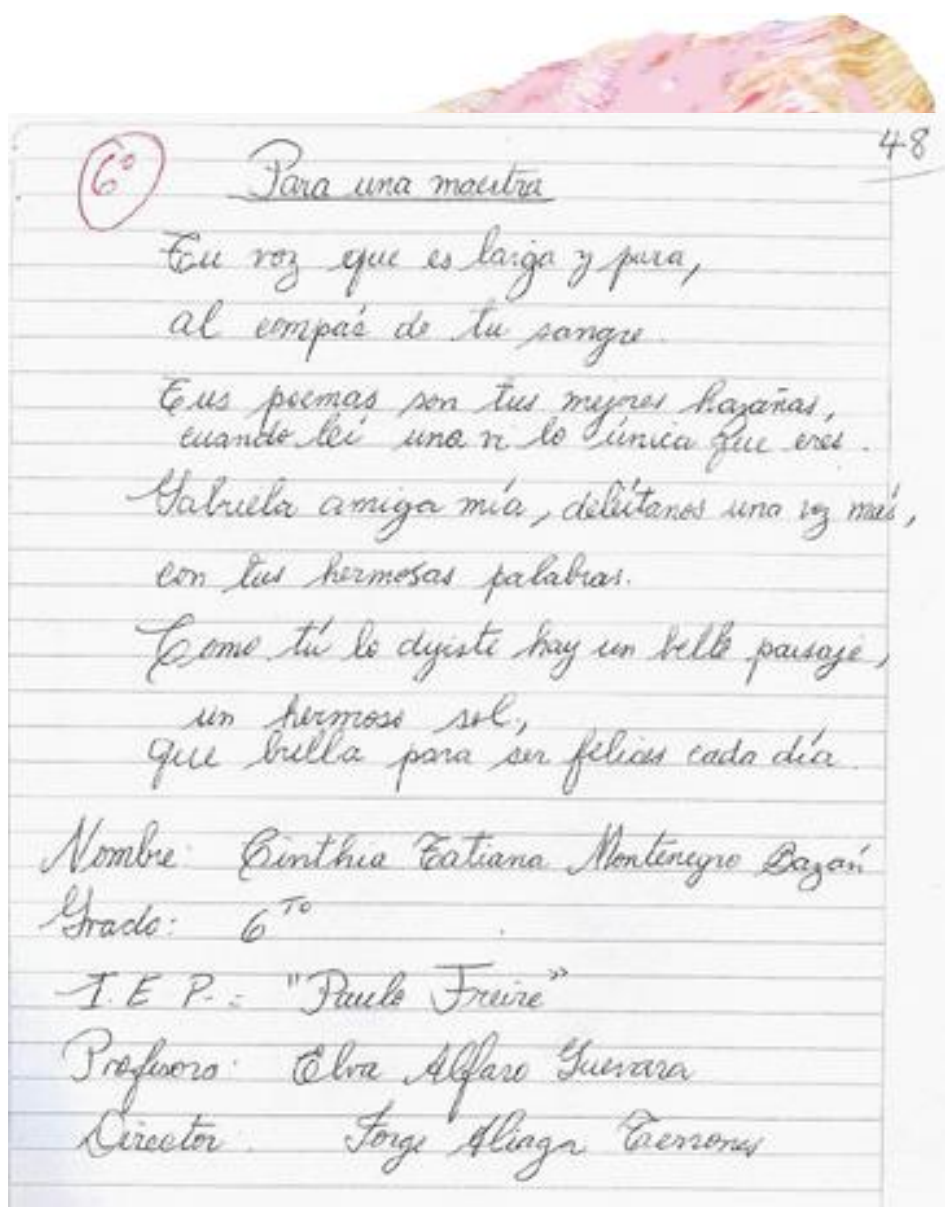 48
6º Para una maestra
Tu voz que es larga y pura,
al compás de tu sangre.
Tus poemas son tus mejores hazañas,
cuando leí uno vi lo única que eres.
Gabriela amiga mía, deléitanos una vez más,
con tus hermosas palabras.
Como tú lo dijiste hay un bello paisaje,
un hermoso sol,
que brilla para ser felices cada día.
Nombre: Cinthia Tatiana Montenegro Bazán
Grado: 6TO
I.E.P.: "Paulo Freire"
Profesora: Elva Alfaro Guevara
Director: Jorge Aliaga Terrones